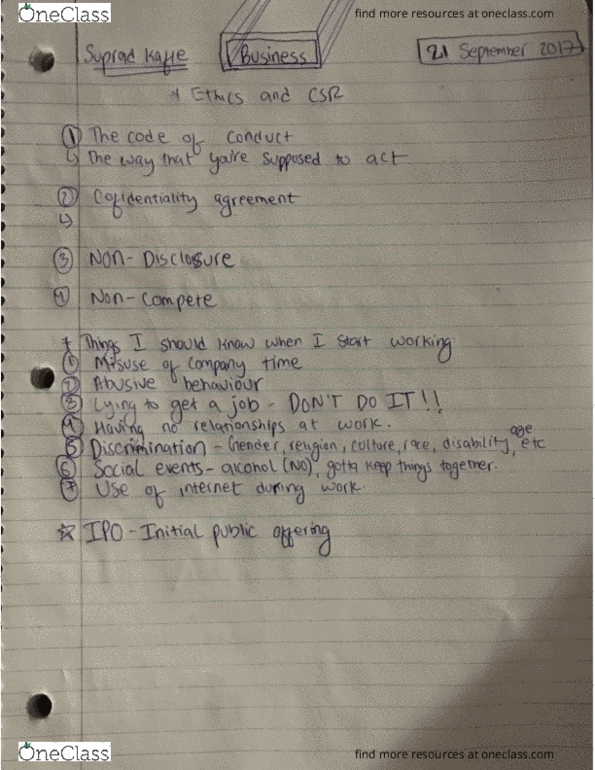 OneClass
find more resources at oneclass.com
Suprad Kafle Business 21 September 2017
* Ethics and CSR
① The code of conduct
↳ The way that you're supposed to act
② Cofidentiality agreement
↳
③ Non-Disclosure
④ Non-Compete
* Things I should know when I start working
① Misuse of company time
② Abusive behaviour
③ Lying to get a job - DON'T DO IT!!
④ Having no relationships at work.
⑤ Discrimination - Gender, religion, culture, race, disability, age, etc
⑥ Social events - alcohol (NO), gotta keep things together.
⑦ Use of internet during work.
☆ IPO - Initial public offering
OneClass
find more resources at oneclass.com